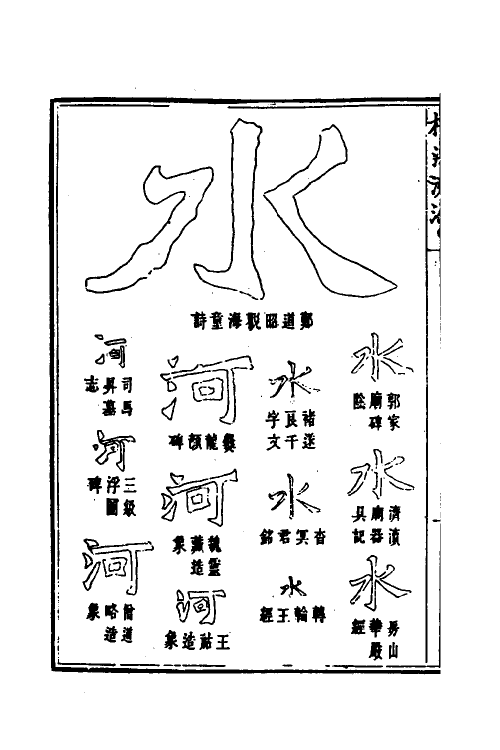 水
鄭道昭觀海童詩
水
郭家廟碑陰
水
濟瀆廟器具記
水
房山華嚴經
水
褚遂良千字文
水
杳冥君銘
水
轉輪王經
河
爨龍顏碑
河
魏靈藏造象
河
王造象
河
司馬昇墓志
河
三級浮圖碑
河
僧道略造象